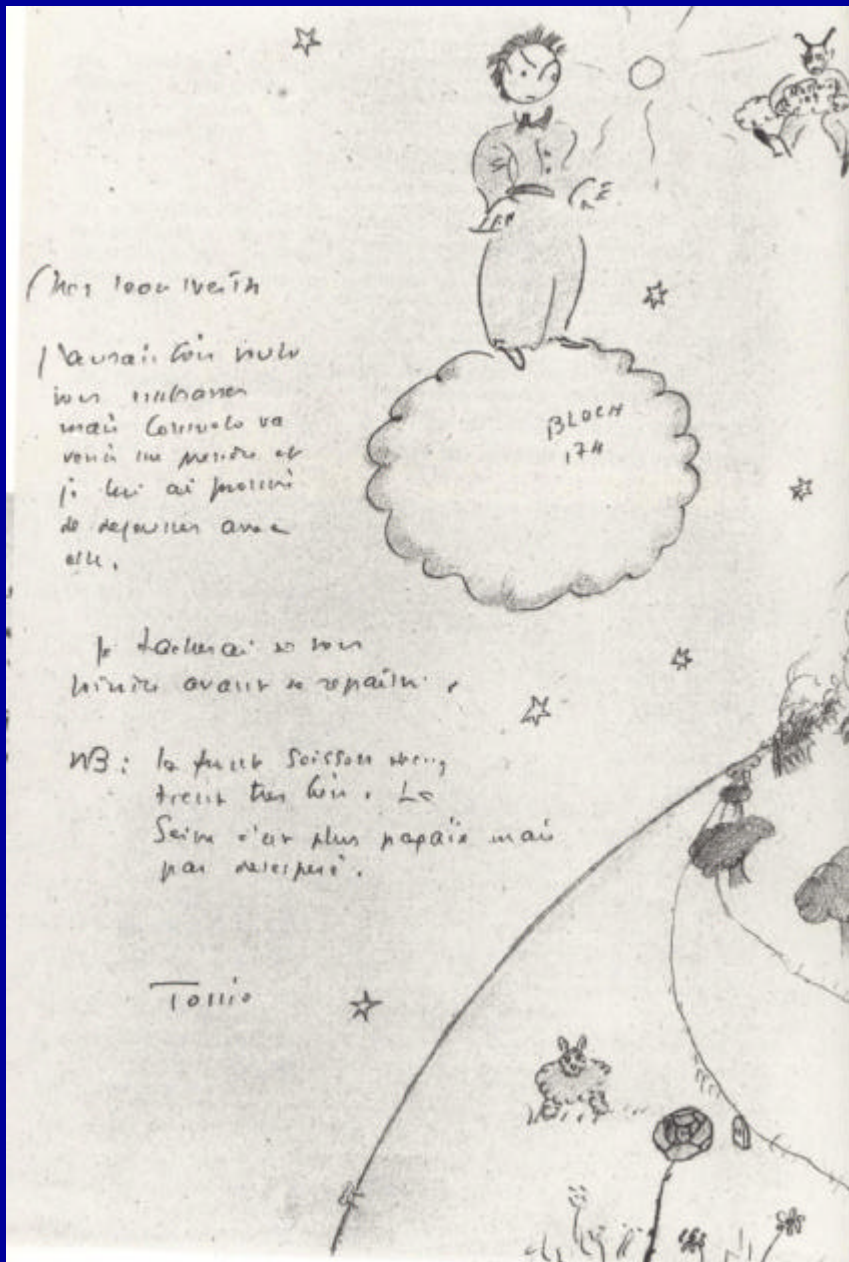 Cher leon Werth
J'aurais bien voulu
vous embrasser
mais Consuelo va
venir me prendre et
je lui ai promis
de dejeuner avec
elle.
Je tacherai de vous
joindre avant de repartir.
NB: le front Soissons
tient tres bien. La
Seine c'est plus pagaïe mais
pas desesperé.
Tonio
BLOCH
174